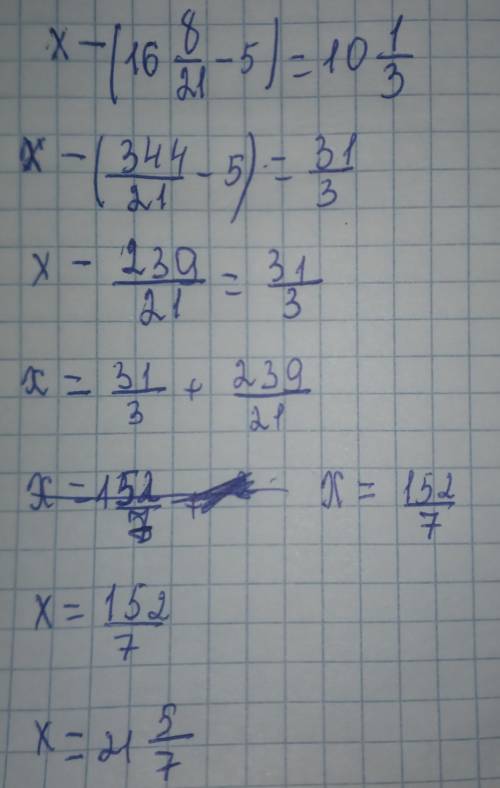 x - (16 8/21 - 5) = 10 1/3
x - (344/21 - 5) = 31/3
x - 239/21 = 31/3
x = 31/3 + 239/21
x = 152/7
x = 152/7
x = 21 5/7